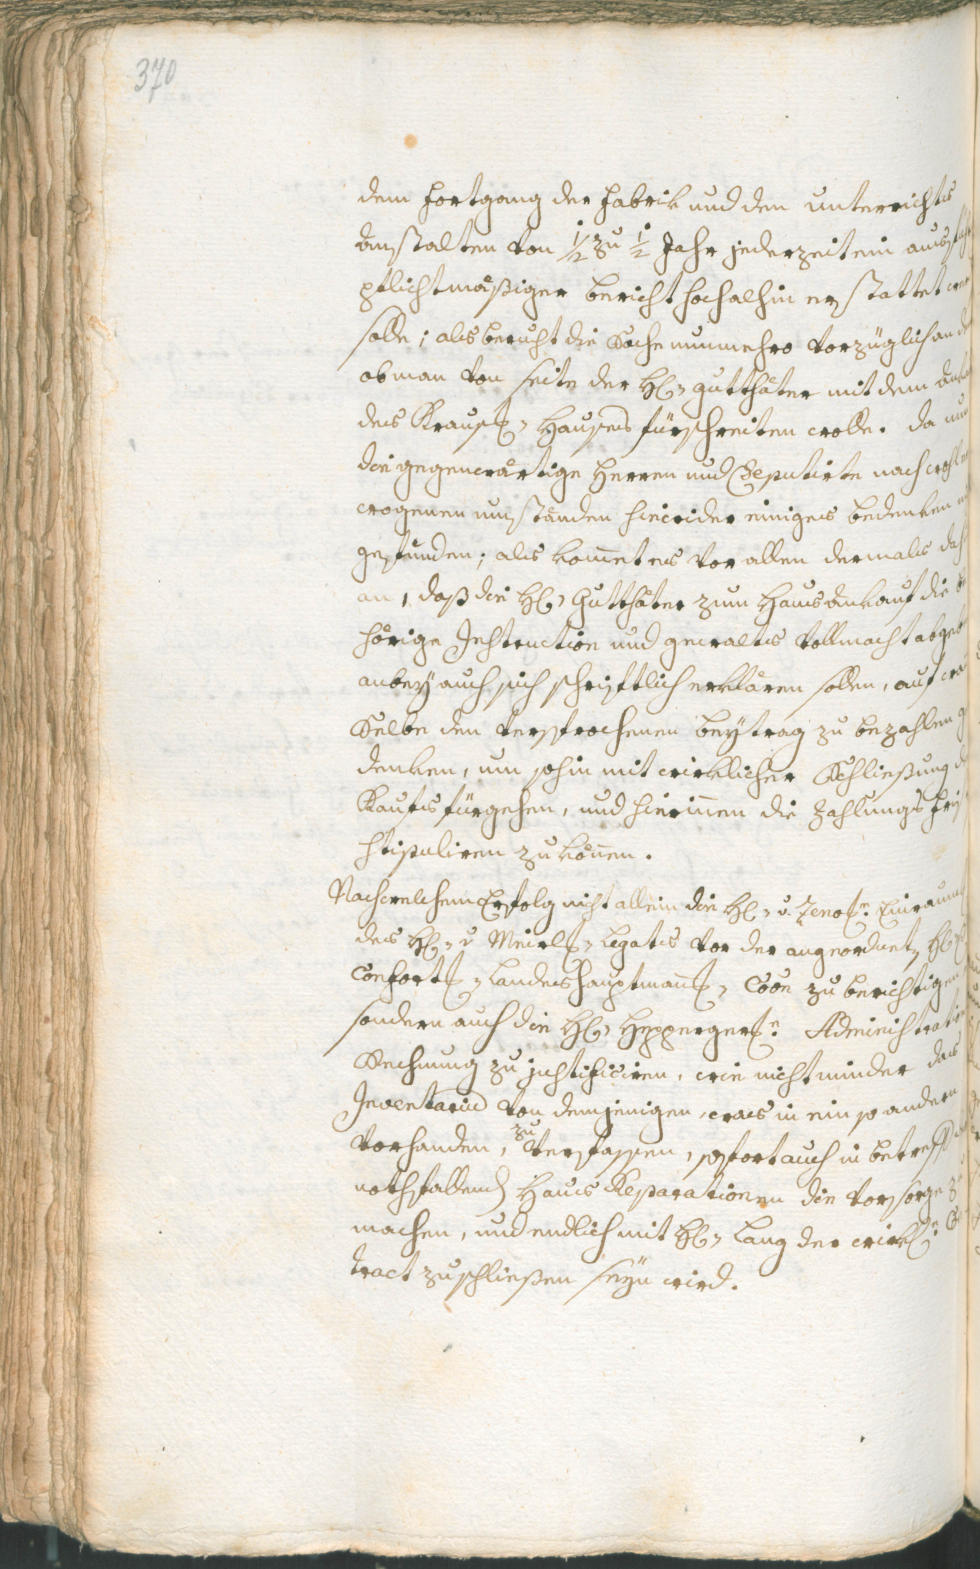 370
dem Fortgang der Fabrik und den Unterrichts
Anstalten von 1/2 zu 1/2 Jahr jederzeit ein
pflichtmäßiger Bericht hochalhin erstattet
solle; als beruht die Sache nunmehro vorzüglich an
ob man von seite der H: Gutthäter mit dem
des Hauses fürschreiten wolle. Da
die gegenwärtige Herren und Deputirte nach
wogenen umständen hiewider einiges bedenken
gefunden; als kom̄et es vor allen dermals
an, daß die H: Gutthäter zum Haus Ankauf die
hörige Instruction und gewaltes Vollmacht
anbey auch sich schriftlich erklären sollen, auf
Selbe den versprochenen beytrag zu bezahlen
denken, um sohin mit wirklicher Schließung
Kaufs fürgehen, und hierin̄en die Zahlungs
stipuliren zu kön̄en.
Nach welchem Erfolg nicht allein die H: v.
des H: v Legats vor der angeordnet: H:
Landeshauptman̄ Coon zu berichtigen
sondern auch die H: Administration
Rechnung zu justificiren, wie nicht minder das
Inventarium von demjenigen, was in ein so andern
vorhanden, zu verfassen, sofort auch in betreff
nothfallend Haus Reparationen die vorsorge
machen, und endlich mit H: Lang der
tract zu schließen seyn wird.